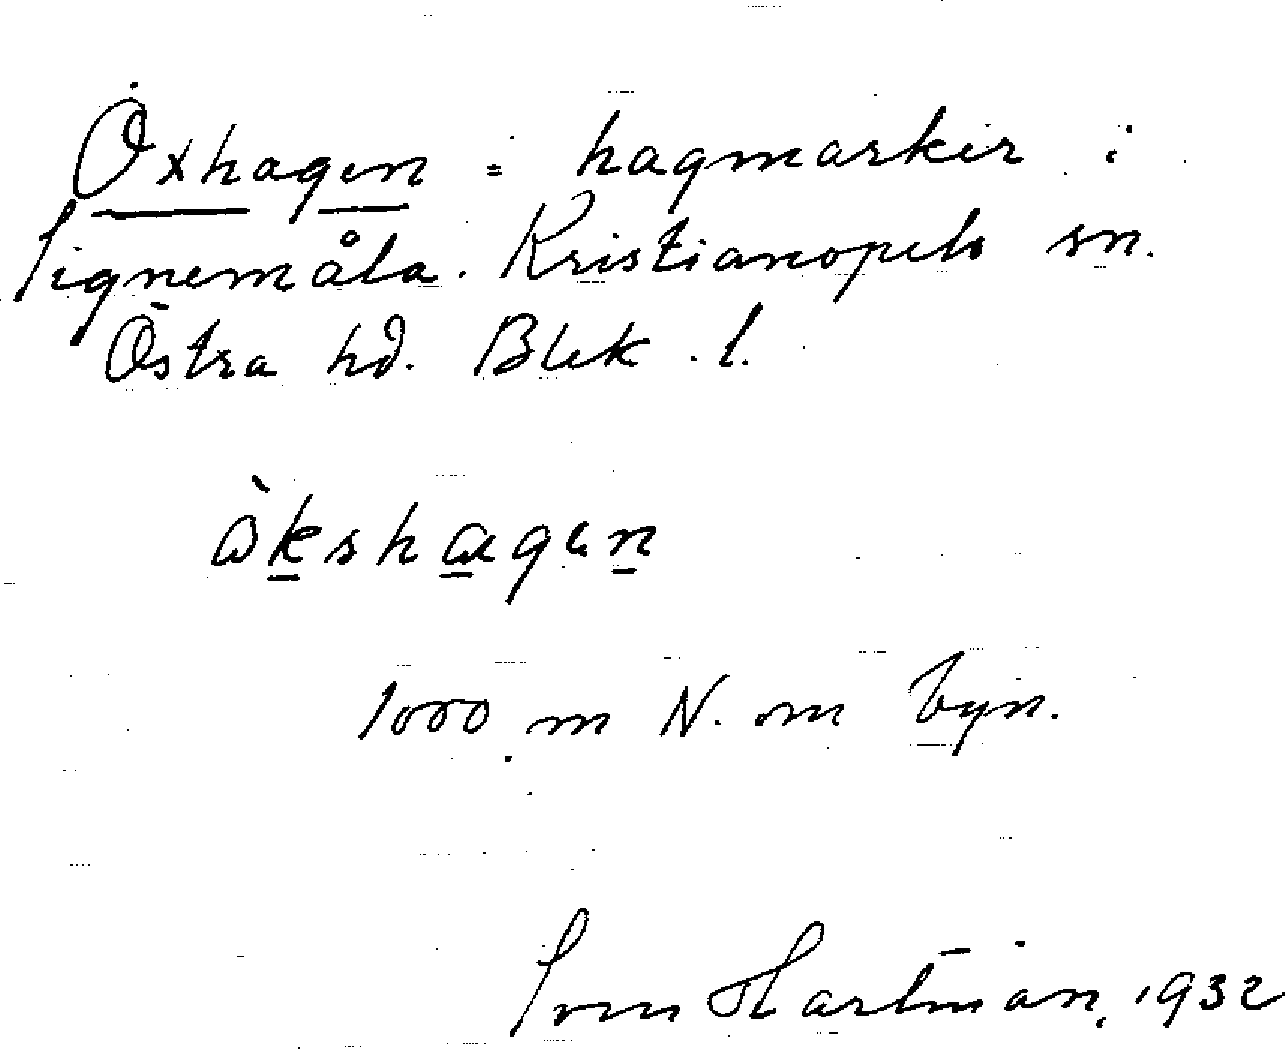 Oxhagen = hagmarker i
Signemåla. Kristianopels sn.
Östra hd. Blek. l.
òkshagen
1000 m N. om byn.
Sven Hartman, 1932